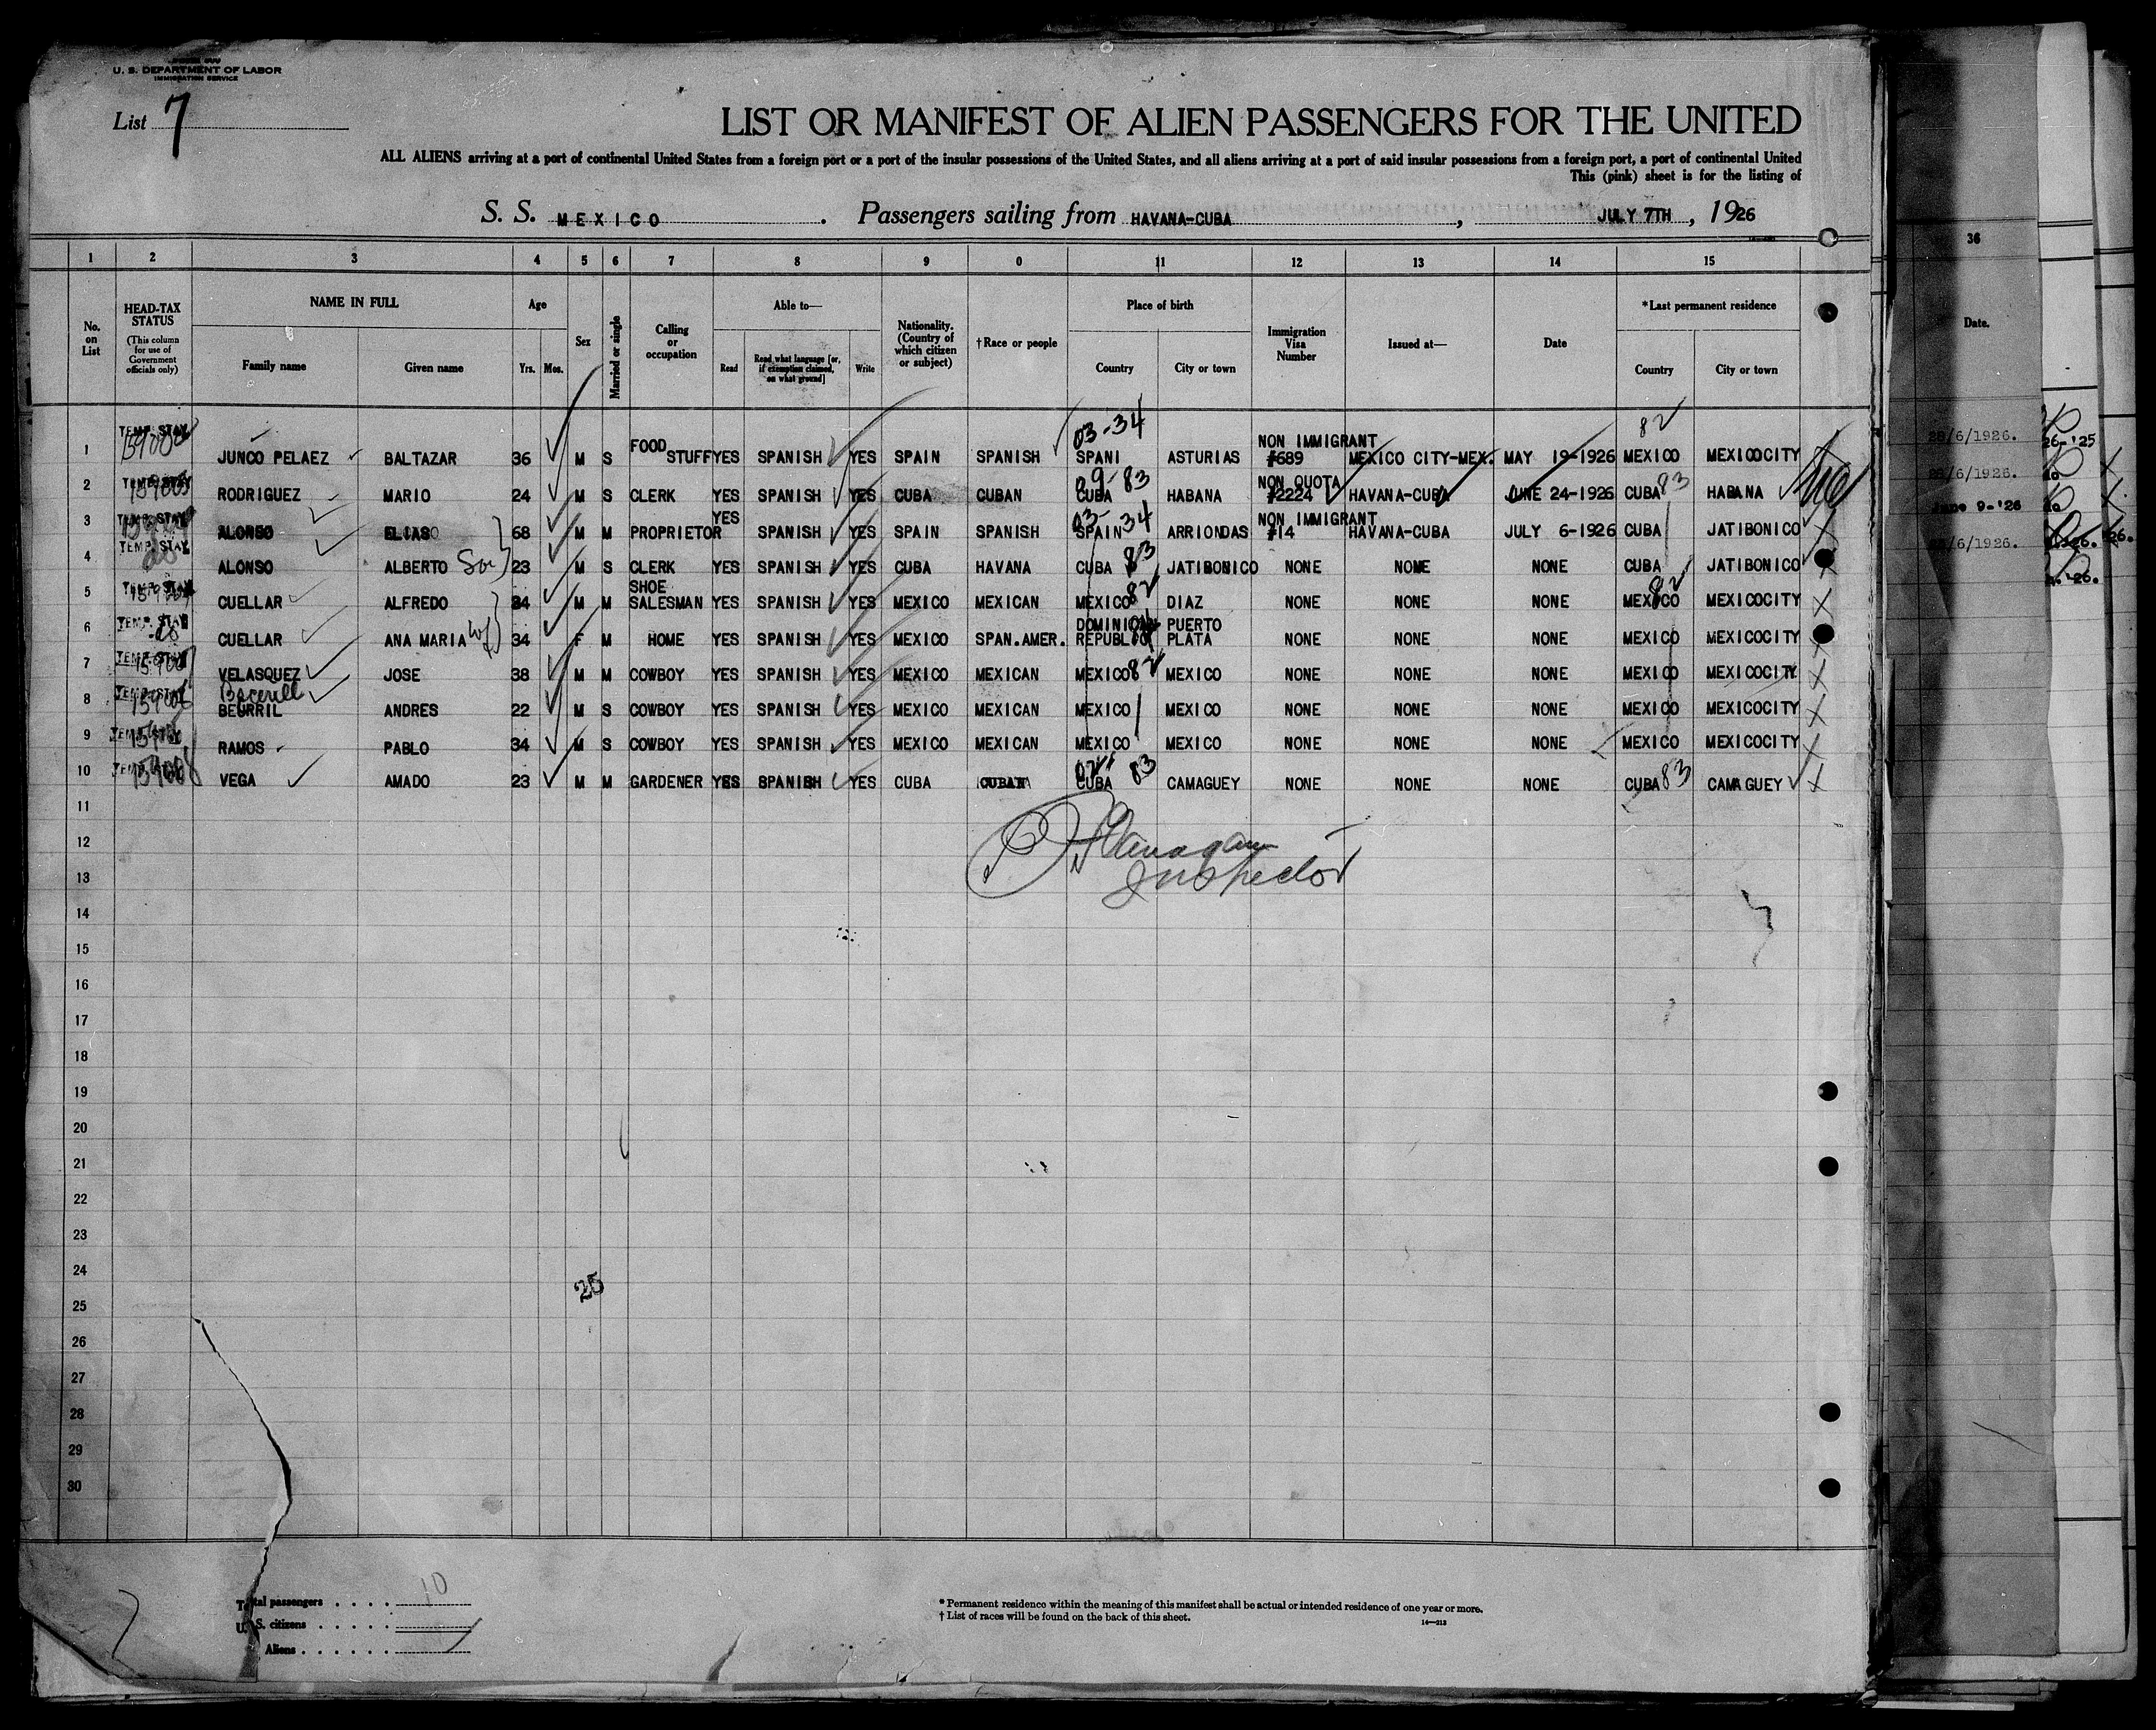 U. S. DEPARTMENT OF LABOR
IMMIGRATION SERVICE
List 7
LIST OR MANIFEST OF ALIEN PASSENGERS FOR THE UNITED
ALL ALIENS arriving at a port of continental United States from a foreign port or a port of the insular possessions of the United States, and all aliens arriving at a port of said insular possessions from a foreign port, a port of continental United
This (pink) sheet is for the listing of
S. S. MEXICO. Passengers sailing from HAVANA-CUBA, JULY 7TH, 1926
1 2 3 4 5 6 7 8 9 0 11 12 13 14 15
No. on List
HEAD-TAX STATUS (This column for use of Government officials only)
NAME IN FULL
Family name Given name
Age
Yrs. Mos.
Sex
Married or single
Calling or occupation
Able to—
Read Read what language [or, if exemption claimed, on what ground] Write
Nationality. (Country of which citizen or subject)
†Race or people
Place of birth
Country City or town
Immigration Visa Number
Issued at—
Date
*Last permanent residence
Country City or town
1 TEMP. STAY JUNCO PELAEZ BALTAZAR 36 M S FOOD STUFF YES SPANISH YES SPAIN SPANISH 03-34 SPANI ASTURIAS NON IMMIGRANT #689 MEXICO CITY-MEX. MAY 19-1926 82 MEXICO MEXICOCITY
2 TEMP. STAY RODRIGUEZ MARIO 24 M S CLERK YES SPANISH YES CUBA CUBAN 09-83 CUBA HABANA NON QUOTA #2224 HAVANA-CUBA JUNE 24-1926 CUBA 83 HABANA
3 TEMP. STAY ALONSO ELIAS 68 M M PROPRIETOR YES SPANISH YES SPAIN SPANISH 03-34 SPAIN ARRIONDAS NON IMMIGRANT #14 HAVANA-CUBA JULY 6-1926 CUBA JATIBONICO
4 TEMP. STAY ALONSO ALBERTO Son 23 M S CLERK YES SPANISH YES CUBA HAVANA CUBA 83 JATIBONICO NONE NONE NONE CUBA JATIBONICO
5 TEMP. STAY CUELLAR ALFREDO 34 M M SHOE SALESMAN YES SPANISH YES MEXICO MEXICAN MEXICO 82 DIAZ NONE NONE NONE MEXICO 82 MEXICOCITY
6 TEMP. STAY do CUELLAR ANA MARIA wf 34 F M HOME YES SPANISH YES MEXICO SPAN.AMER. DOMINICAN REPUBLIC PUERTO PLATA NONE NONE NONE MEXICO MEXICOCITY
7 TEMP. STAY VELASQUEZ JOSE 38 M M COWBOY YES SPANISH YES MEXICO MEXICAN MEXICO 82 MEXICO NONE NONE NONE MEXICO MEXICOCITY
8 TEMP. STAY Becerril BEURRIL ANDRES 22 M S COWBOY YES SPANISH YES MEXICO MEXICAN MEXICO MEXICO NONE NONE NONE MEXICO MEXICOCITY
9 TEMP. STAY RAMOS PABLO 34 M S COWBOY YES SPANISH YES MEXICO MEXICAN MEXICO MEXICO NONE NONE NONE MEXICO MEXICOCITY
10 VEGA AMADO 23 M M GARDENER YES SPANISH YES CUBA CUBAN CUBA 83 CAMAGUEY NONE NONE NONE CUBA 83 CAMAGUEY
11
12 Flanagan
13 Inspector
14
15
16
17
18
19
20
21
22
23
24
25
25
26
27
28
29
30
Total passengers . . . . 10
U. S. citizens . . . . .
Aliens . . . . . .
* Permanent residence within the meaning of this manifest shall be actual or intended residence of one year or more.
† List of races will be found on the back of this sheet.
14—213
36
Date.
28/6/1926.
28/6/1926.
June 9-'26
26-'25
do
do